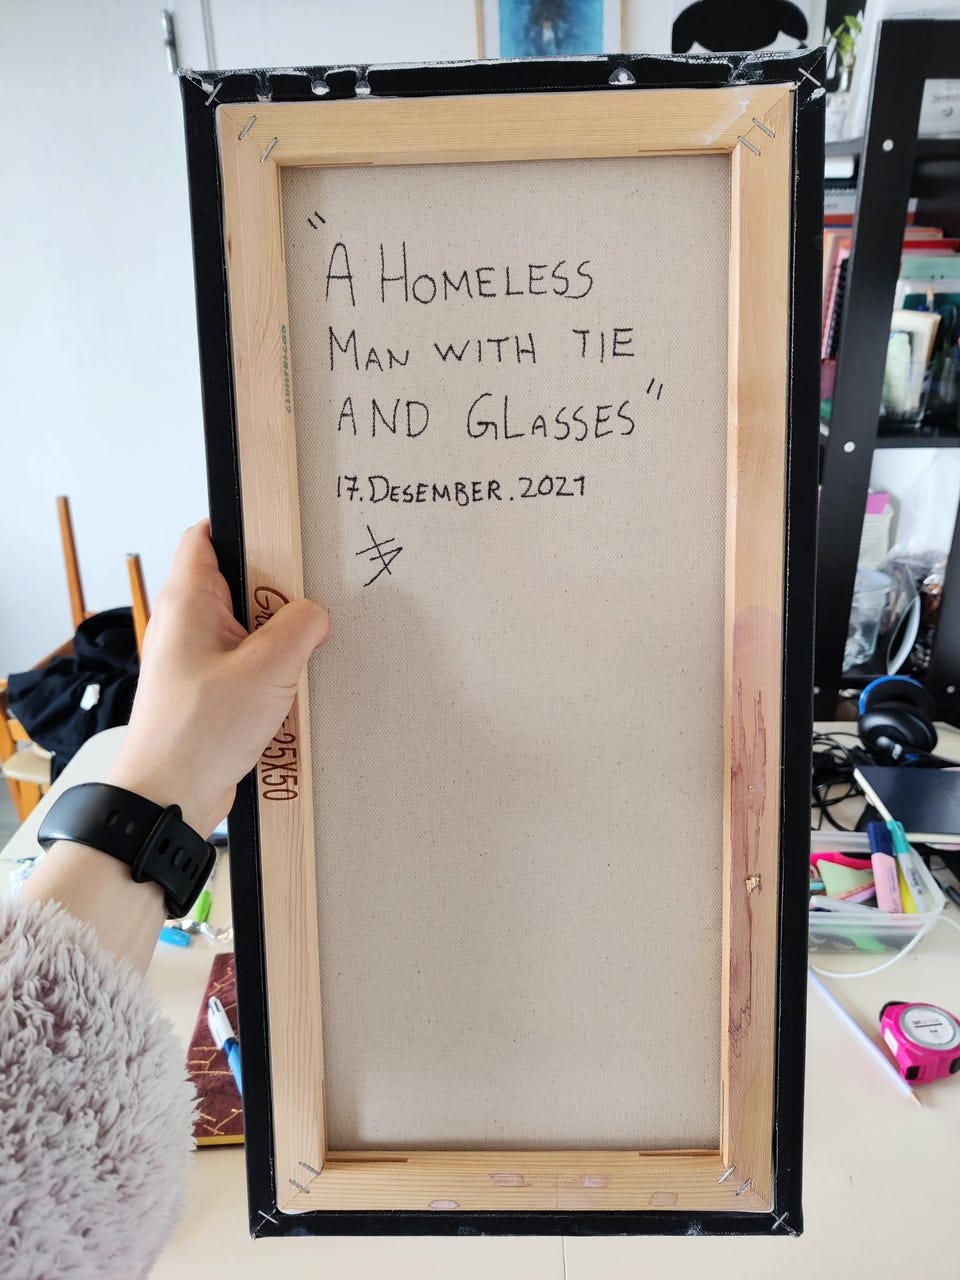 "A HOMELESS
MAN WITH TIE
AND GLASSES"
17.DESEMBER.2021
25X50